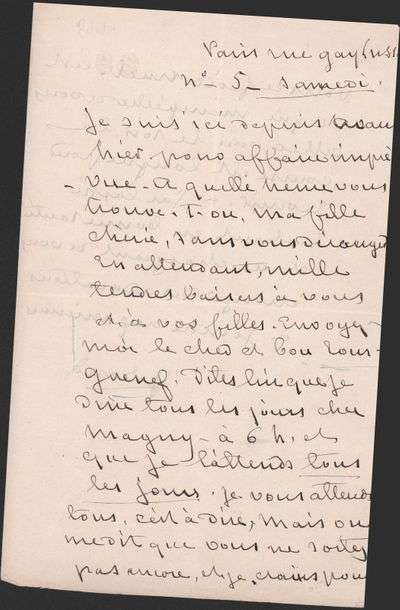 Paris rue gay Lussac
n° - 5 - samedi.
Je suis ici depuis avan
hier - pour affaire impré
- vue - A quelle heure vous
trouve - t - on, ma fille
chérie, sans vous déranger
En attendant, mille
tendres baisers à vous
et à vos filles. Envoyez
moi le cher et bon Tour-
guenef. Dites lui que je
dîne tous les jours chez
Magny - à 6 h, et
que je l'attends tous
les jours. Je vous attends
tous, c'est à dire, mais on
me dit que vous ne sortez
pas encore, et je crains pour